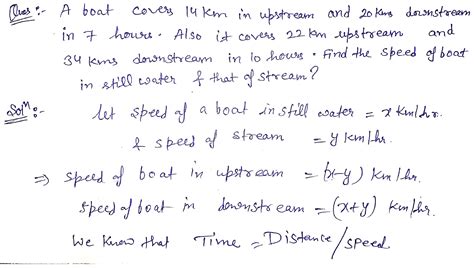 Ques :- A boat covers 14 Km in upstream and 20 Kms downstream
in 7 hours. Also it covers 22 Km upstream and
34 Kms downstream in 10 hours. Find the speed of boat
in still water & that of stream?
Solⁿ :- let speed of a boat in still water = x Km/hr.
& speed of stream = y Km/hr.
⇒ speed of boat in upstream = (x-y) Km/hr.
speed of boat in downstream = (x+y) Km/hr.
We Know that Time = Distance/speed